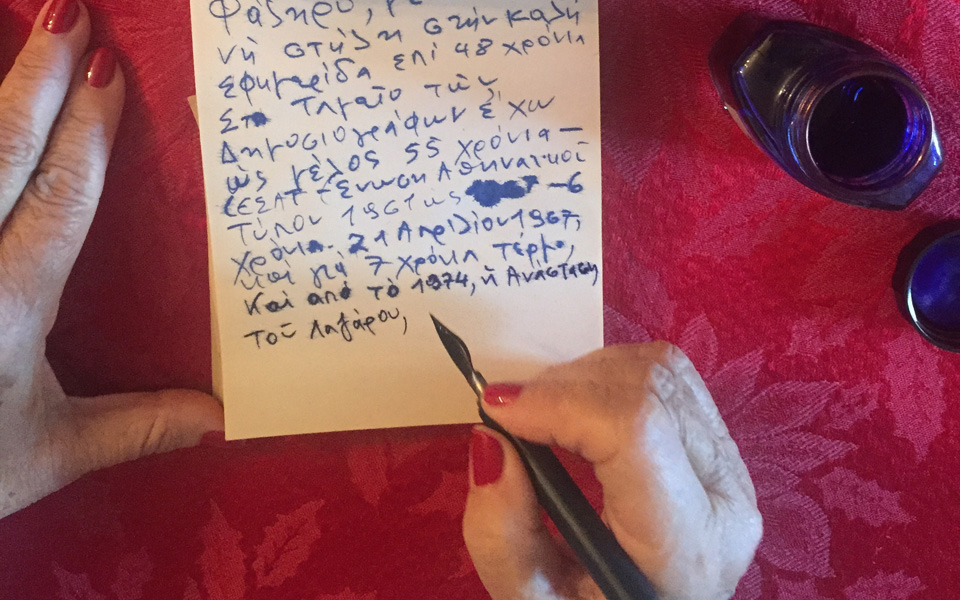 Φαίδηρο, με
νή στήλη στήν καθη
εφημερίδα επί 48 χρόνια
Στο Ταμείο τών
Δημοσιογράφων έχω
ώς μέλος 55 χρόνια —
(ΕΣΗΤ (Ένωση Αθηναϊκού
Τύπου 1961 ως — 6
χρόνια. 21 Απριλίου 1967,
και γιά 7 χρόνια τέρμα,
και από τό 1974, ή Ανάσταση
τού Λαζάρου,